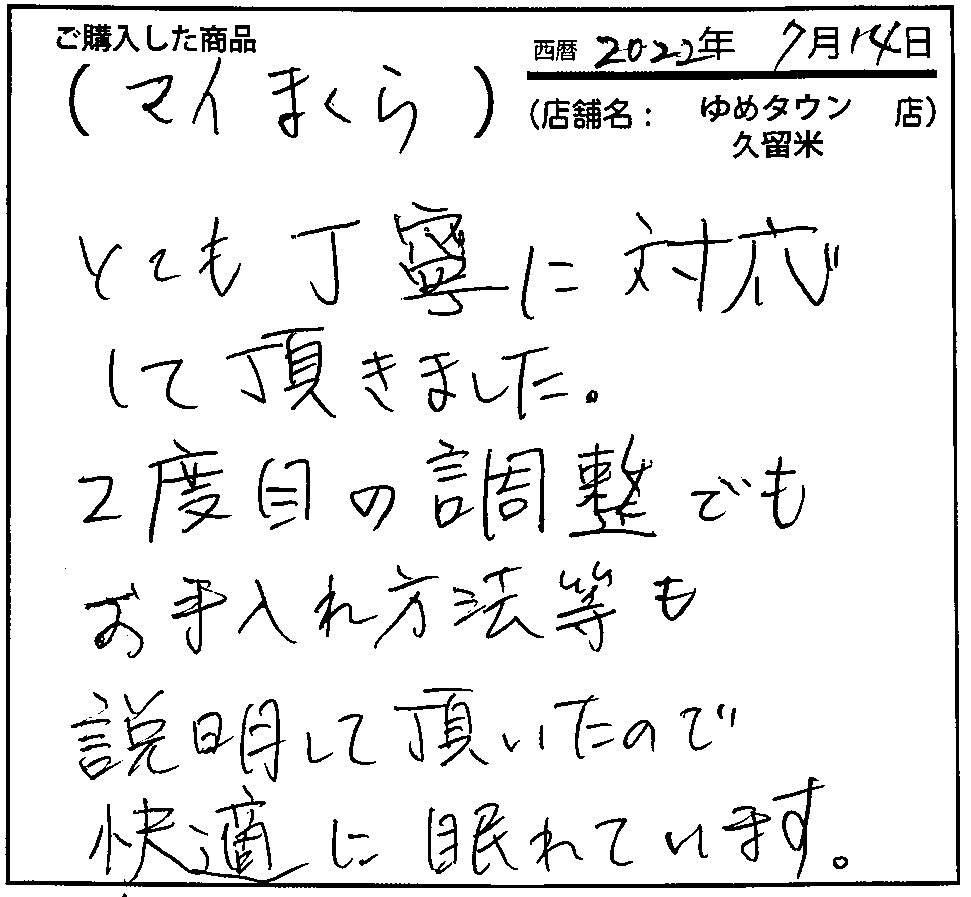 ご購入した商品
西暦 2022年 7月14日
(マイまくら)
(店舗名: ゆめタウン 店)
久留米
とても丁寧に対応
して頂きました。
2度目の調整でも
お手入れ方法等も
説明して頂いたので
快適に眠れています。